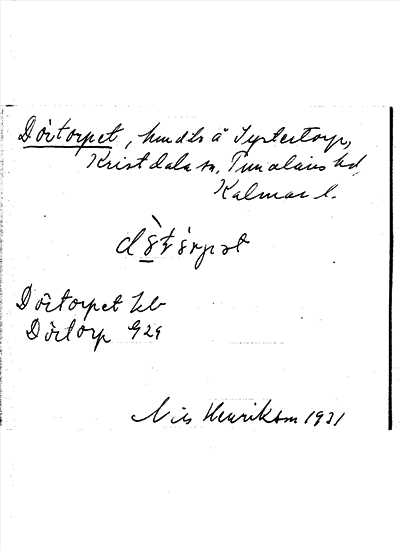 Dörtorpet, hmdls å Systertorp,
Kristdala sn, Tunaläns hd,
Kalmar l.
Dörtorpet hb
Dörtorp G29
Nils Henrikson 1931